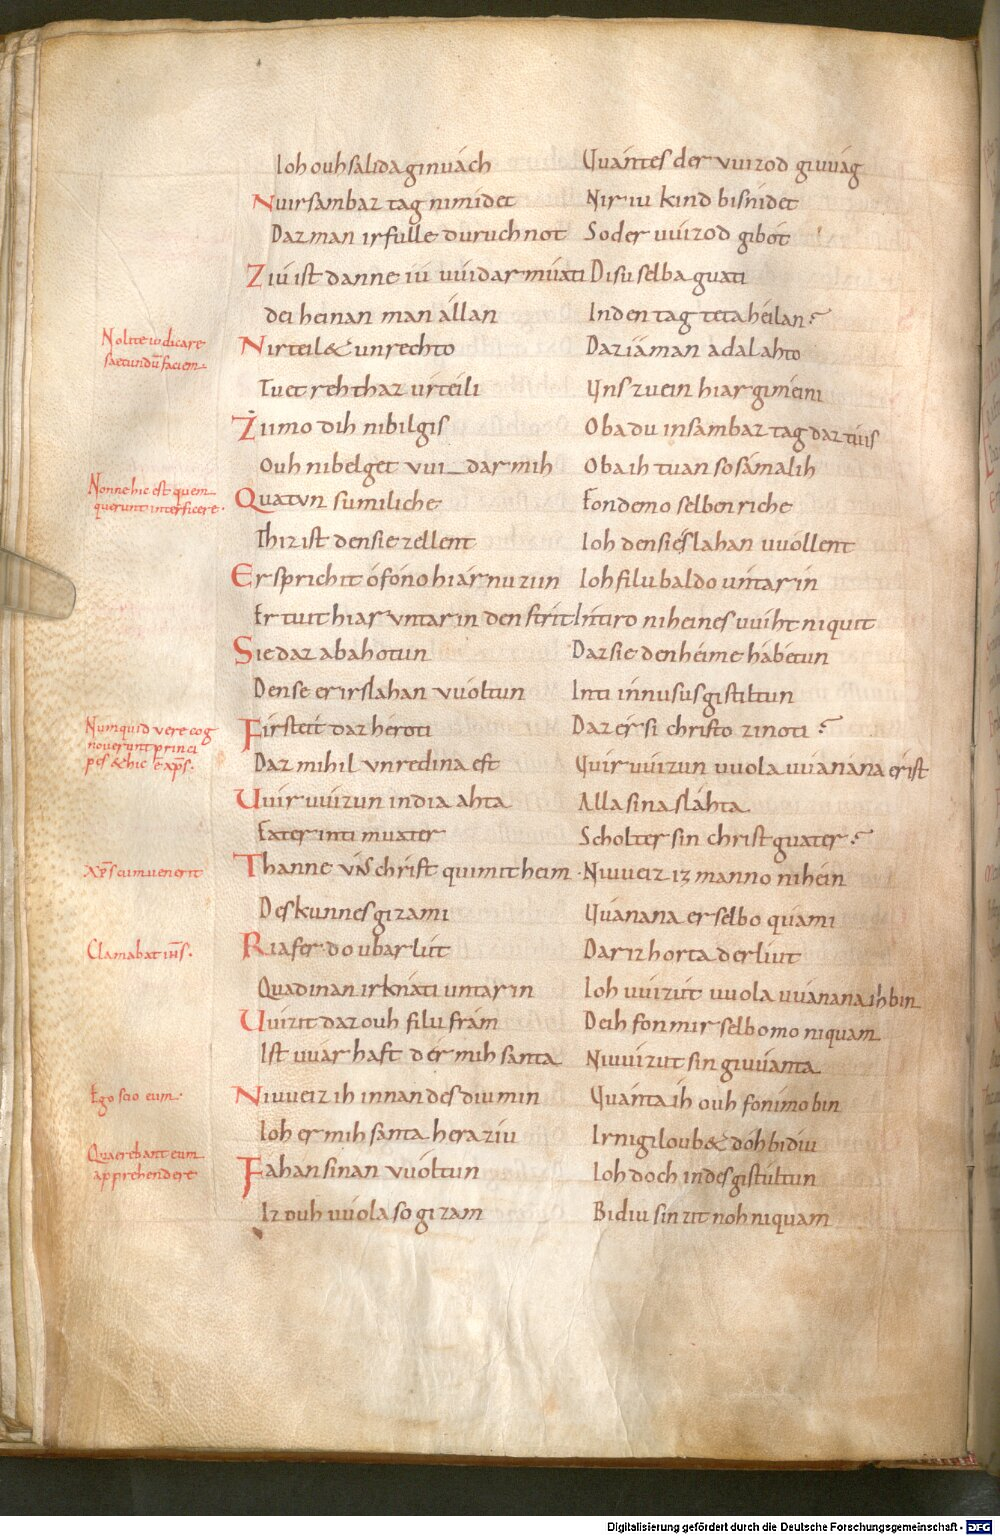 Ioh ouh salida ginuách Uuántes der vuizod giuuág
Nuir sambaz tag nimidet Nir iu kind bisnidet
Daz man irfulle duruchnot So der uuizod gibót
Ziu ist danne iú uuidar muati Disu selba guati
dei heinan man állan In den tag teta héilan?
Nolite iudicare
saecundū faciem.
Nirteil& unrechto Daz iáman ádal ahto
Tuet rehthaz úrteili Uns zuein hiar giméini
Ziimo dih nibilgis Oba du in sambaz tag daz túis
Ouh nibelget vui_dar mih Oba ih tuan so sámalih
Nonne hic est quem
querunt interficere.
Quatun sumiliche Fondemo selben riche
Thiz ist den sie zellent Ioh den sie slahan uuóllent
Er sprichit ófóno hiár nu ziin Ioh filu baldo úntar in
Er tuit hiar vntar in den strit Intiro niheines uuiht niquit
Sie daz abahotun Daz sie den héime hábetun
Den se er irslahan vuóltun Inti innu sus gistiltun
Numquid vere cog
nouerunt princi
pes & hic ē xp̄s.
Firsteit daz héroti Daz ér si christo zi noti?
Daz mihil vnredina est Uuir uuizun uuola uuanana er ist
Uuir uuizun india ahta Alla sina sláhta
Fater inti muater Scholter sin christ guater?
Xp̄s cum venerit
Thanne vńs christ quimit heim. Niuueiz iz manno nihéin
Des kunnes gizami Uuánana er selbo quámi
Clamabat ih̄s.
Riaf er do ubarlút Daz iz horta der liut
Quad inan irknáti untar in Ioh uuizút vuola uuanana ih bin
Uuizit daz ouh filu frám Deih fon mir selbomo niquam
Ist uuár haft dér mih santa Niuuizut sin giuuánta
Ego scio eum.
Niuueiz ih innan des diu min Uuánta ih ouh fon imo bin
Ioh er mih santa hera ziu Ir nigiloub& dóh bi diu
Quaerebant eum
apprehendere
Fahan sinan vuóltun Ioh doch indes gistúltun
Iz ouh uuóla so gizam Bidiu sin zit noh niquam
Digitalisierung gefördert durch die Deutsche Forschungsgemeinschaft - DFG